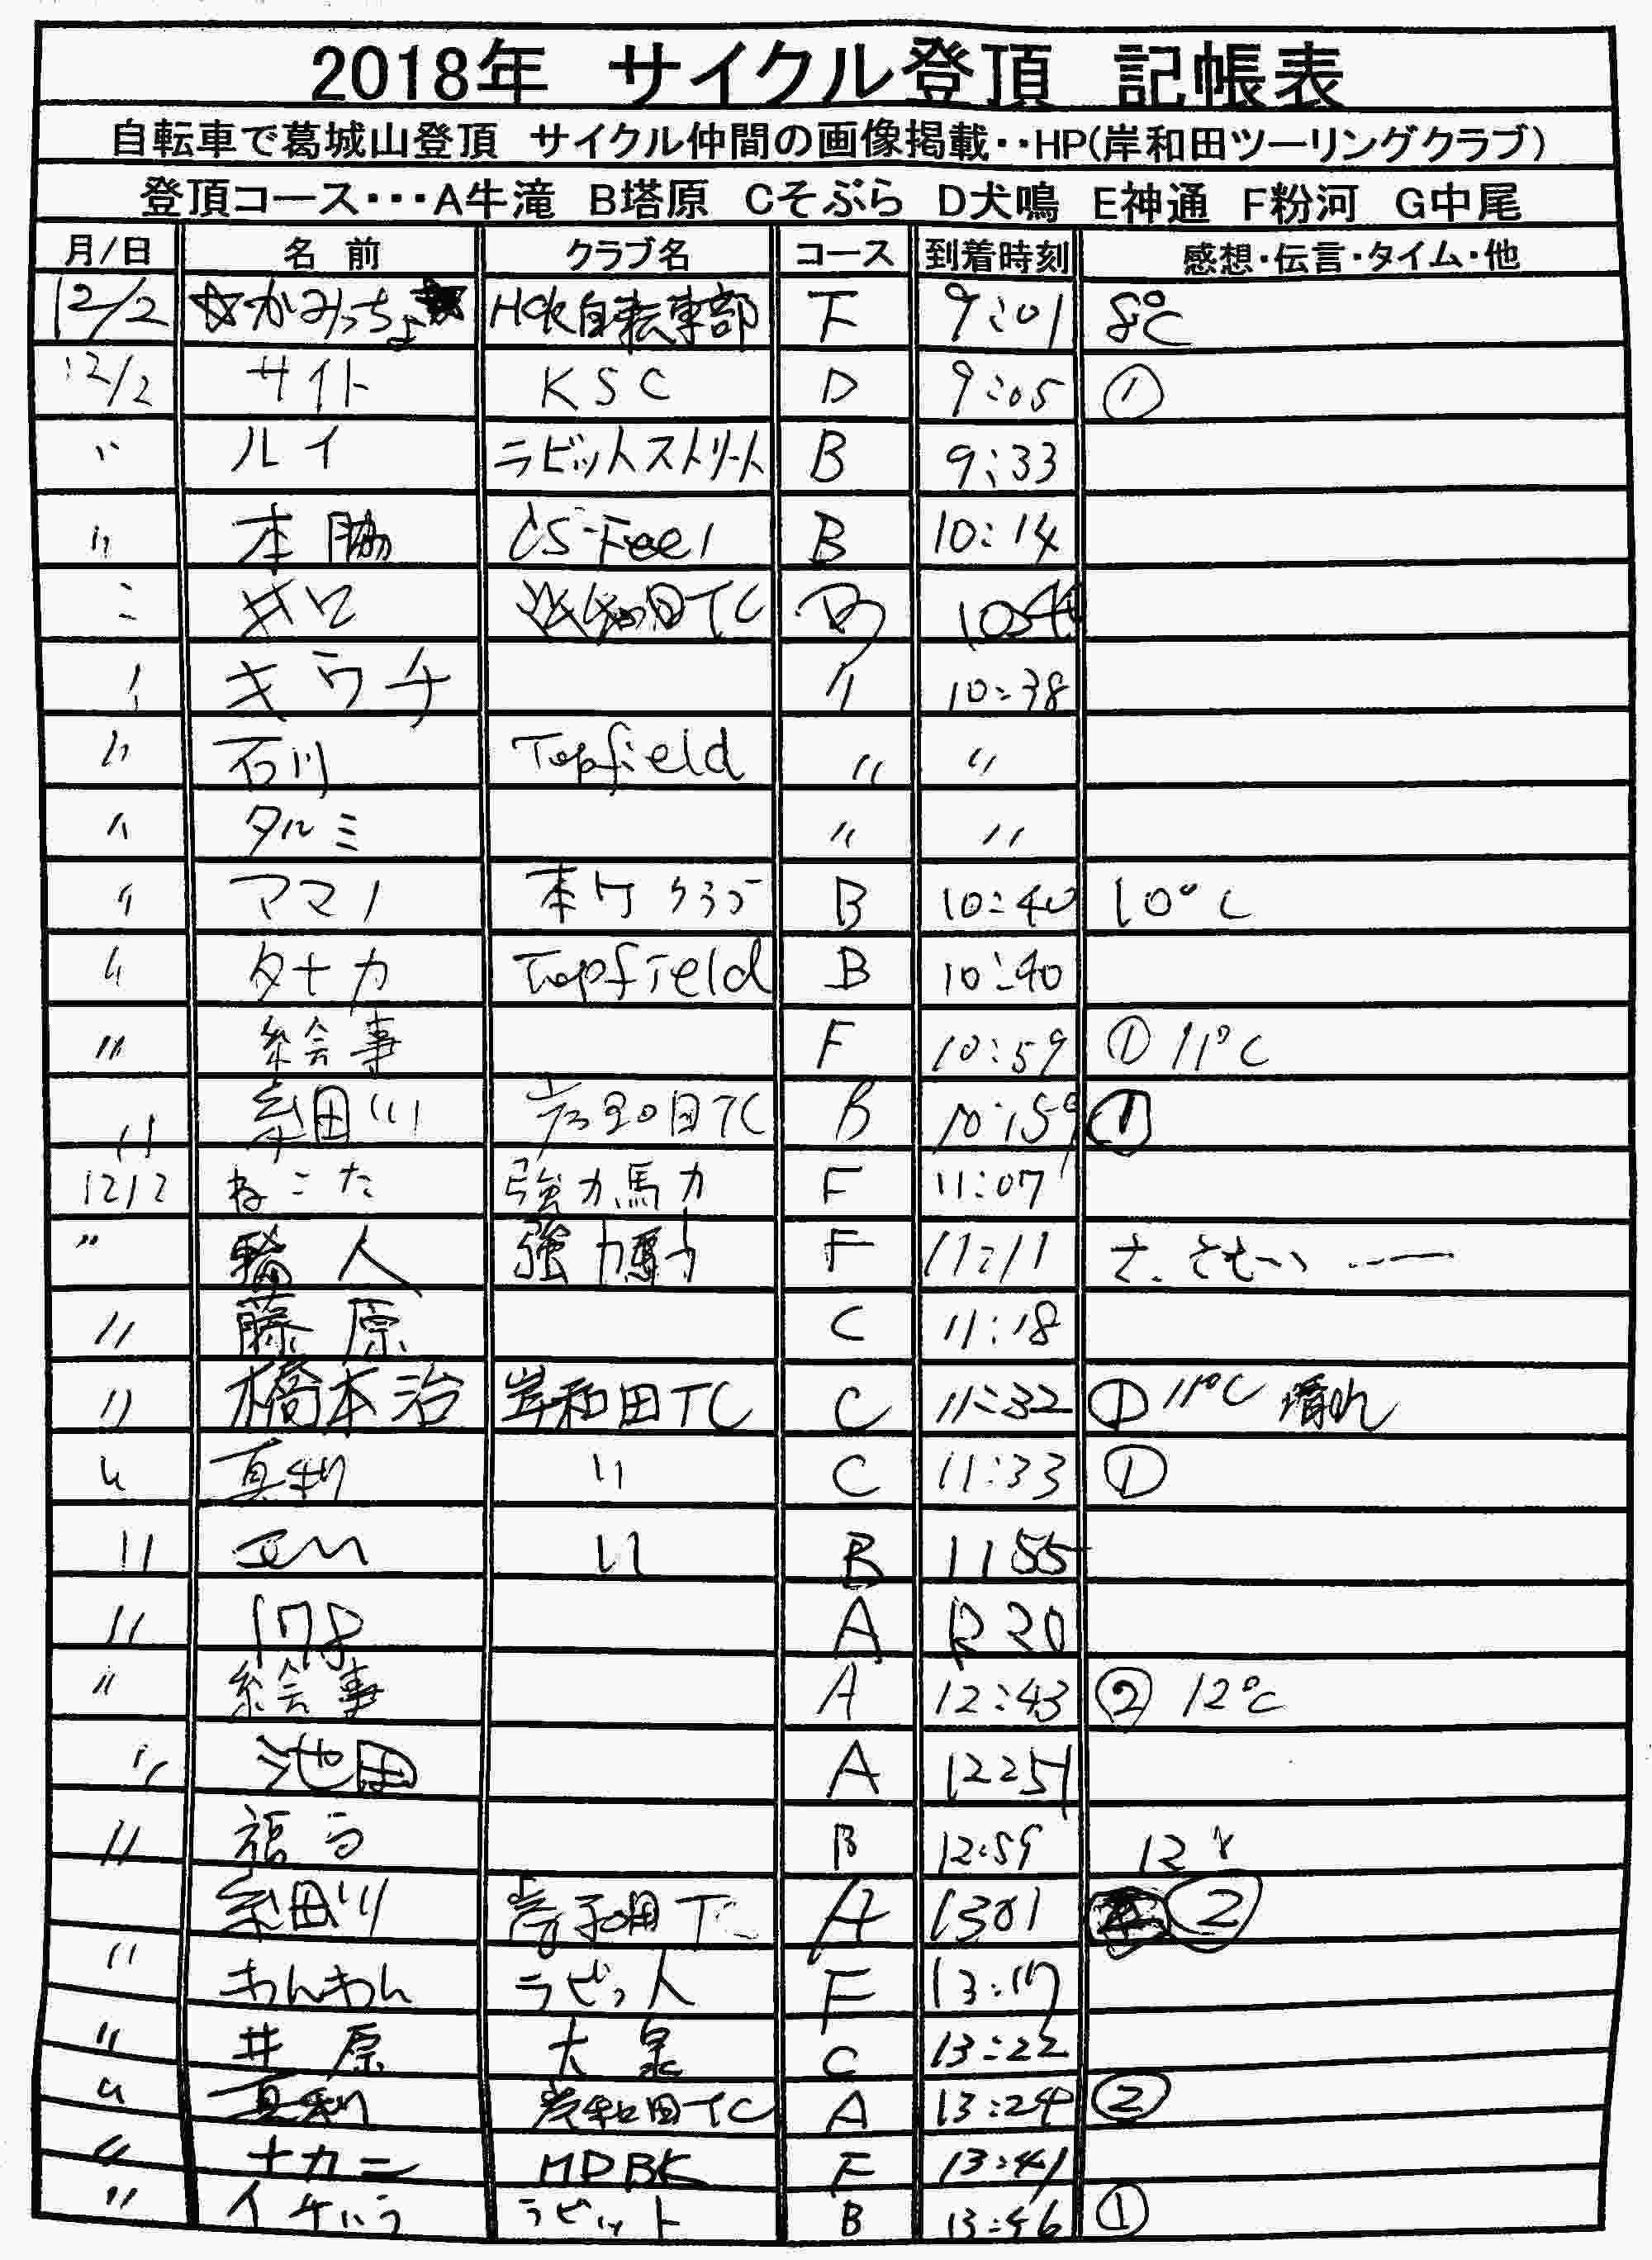 2018年 サイクル登頂 記帳表
自転車で葛城山登頂 サイクル仲間の画像掲載・・HP(岸和田ツーリングクラブ)
登頂コース・・・A牛滝 B塔原 Cそぶら D犬鳴 E神通 F粉河 G中尾
月/日 名前 クラブ名 コース 到着時刻 感想・伝言・タイム・他
12/2 ☆かみっちょ★ 自転車部 F 9:01 8℃
12/2 サイト KSC D 9:05 ①
〃 ルイ ラビットストリート B 9:33
〃 本脇 CS-Feel B 10:14
〃 TC B
〃 キウチ 〃 10:38
〃 石川 Topfield 〃 〃
〃 タルミ 〃 〃
〃 アマノ B 10:40 10℃
〃 タナカ Topfield B 10:40
〃 絵会事 F 10:59 ① 11℃
〃 糸田川 岸和田TC B 10:59 ①
12/2 ねこた 強力馬力 F 11:07
〃 輪人 強力馬力 F 11:11 さ、さむーい
〃 藤原 C 11:18
〃 橋本治 岸和田TC C 11:32 ① 11℃ 晴れ
〃 真利 〃 C 11:33 ①
〃 〃 B 1155
〃 178 A 1220
〃 絵会事 A 12:43 ② 12℃
〃 池田 A 12:51
〃 B 12:59 12
糸田川 岸和田TC A 1301 ②
〃 わんわん ラビット F 13:17
〃 井原 大泉 C 13:22
〃 真利 岸和田TC A 13:24 ②
〃 ナカニ MDBK F 13:41
〃 イチハラ ラビット B 13:46 ①